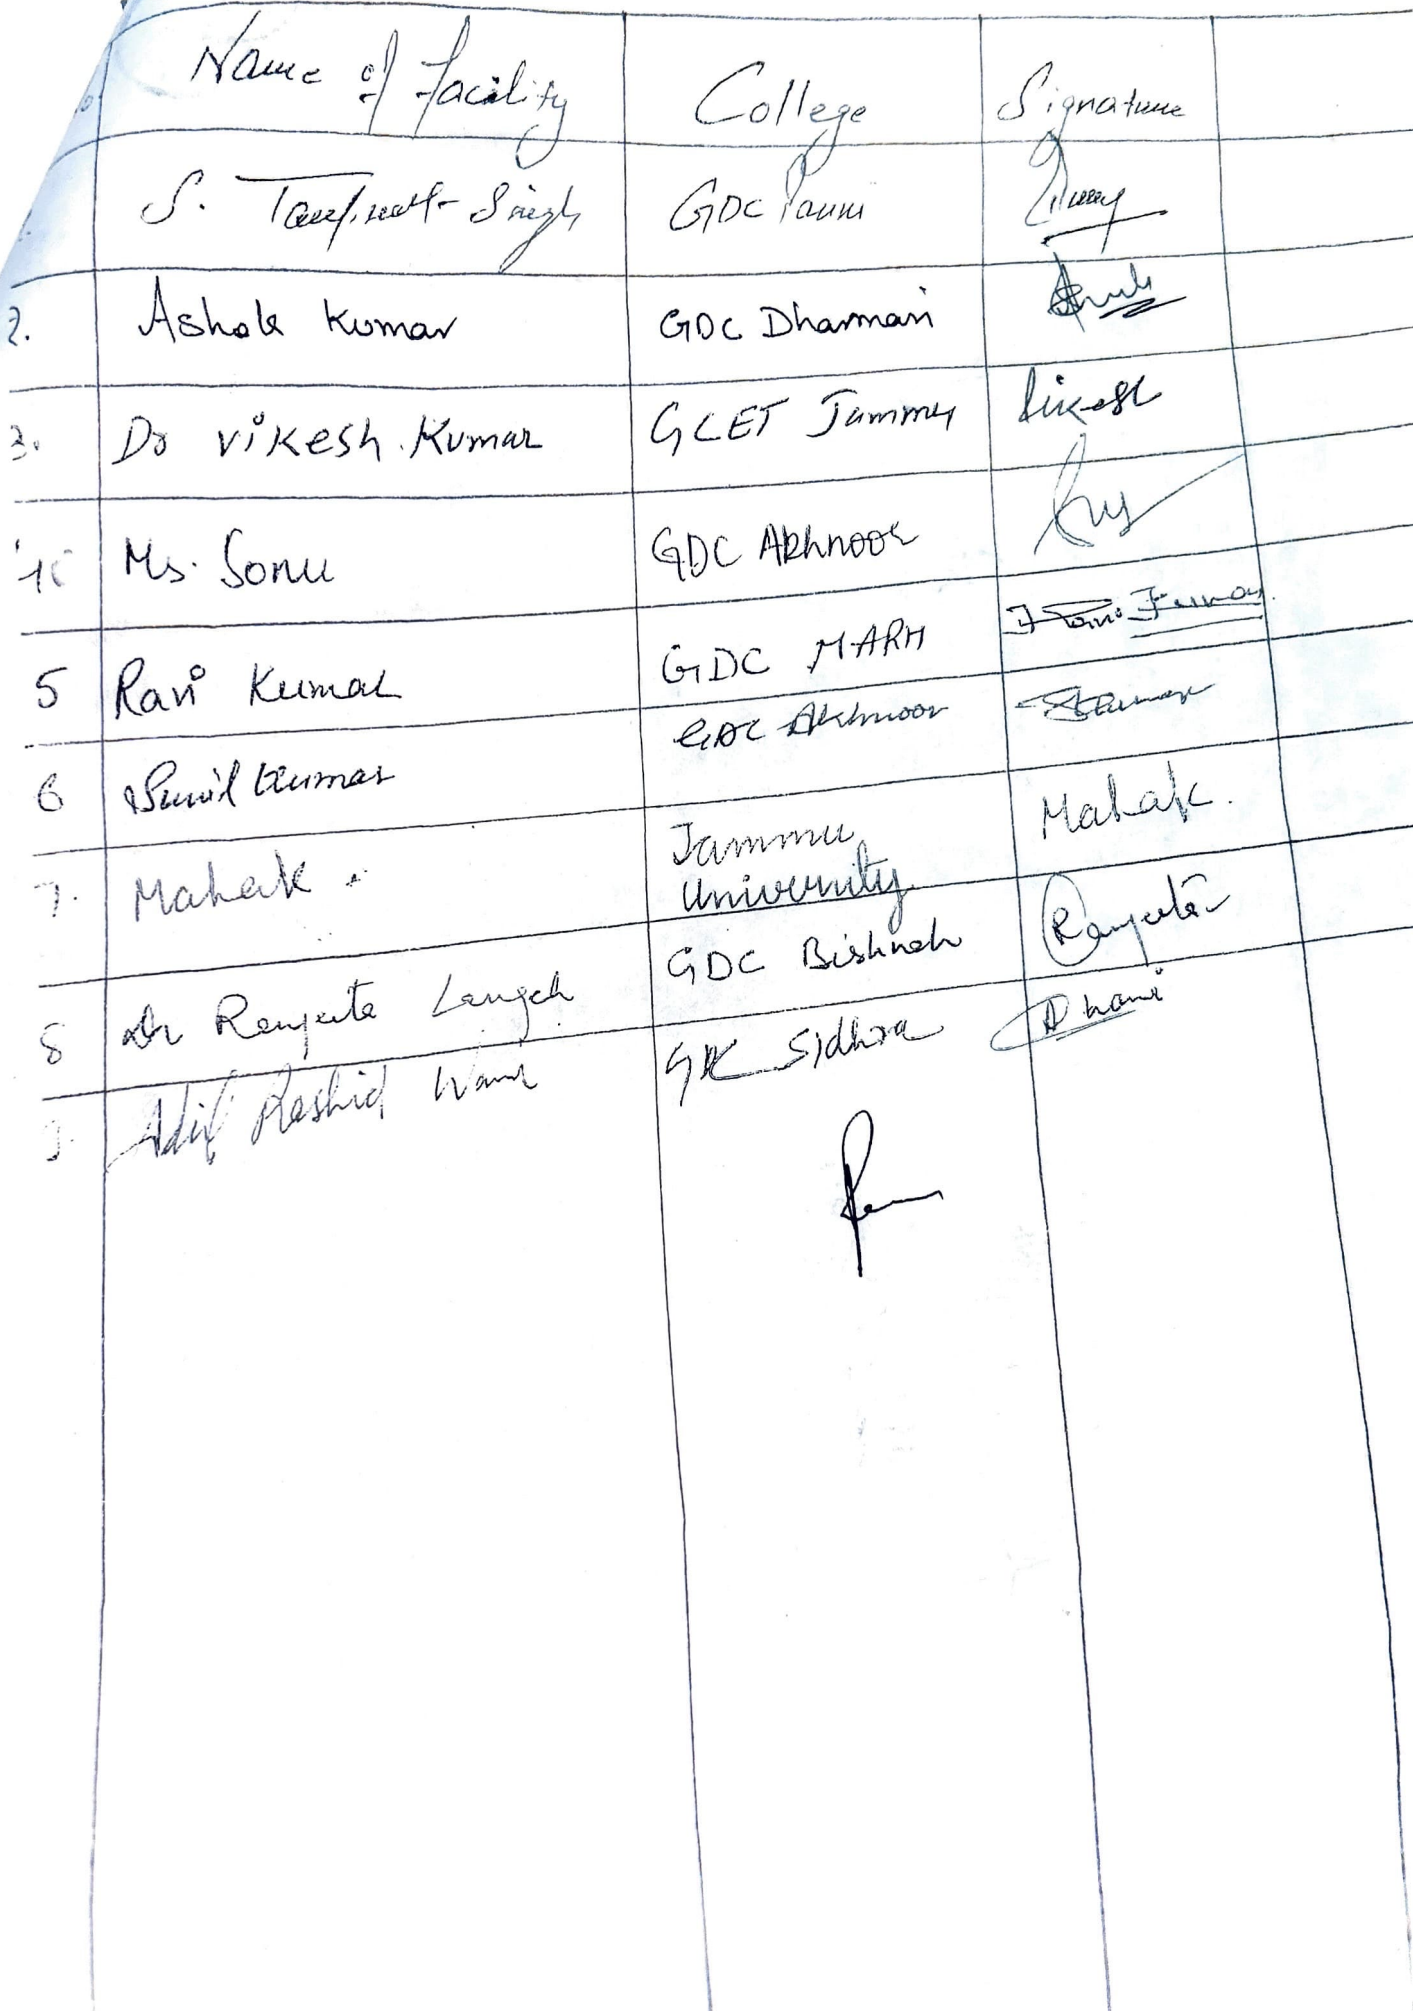 Name of facility College Signature
S. Singh GDC
2. Ashok Kumar GDC Dharmari
3. Dr vikesh. Kumar GCET Jammu Vikesh
Ms. Sonu GDC Akhnoor
5 Ravi Kumar GDC MARH
6 Sunil Kumar GDC Akhnoor
7. Mahak . Jammu Mahak.
University
8 Dr Ranjeeta Langeh GDC Bishnah Ranjeeta
Rashid Wani GDC Sidhra